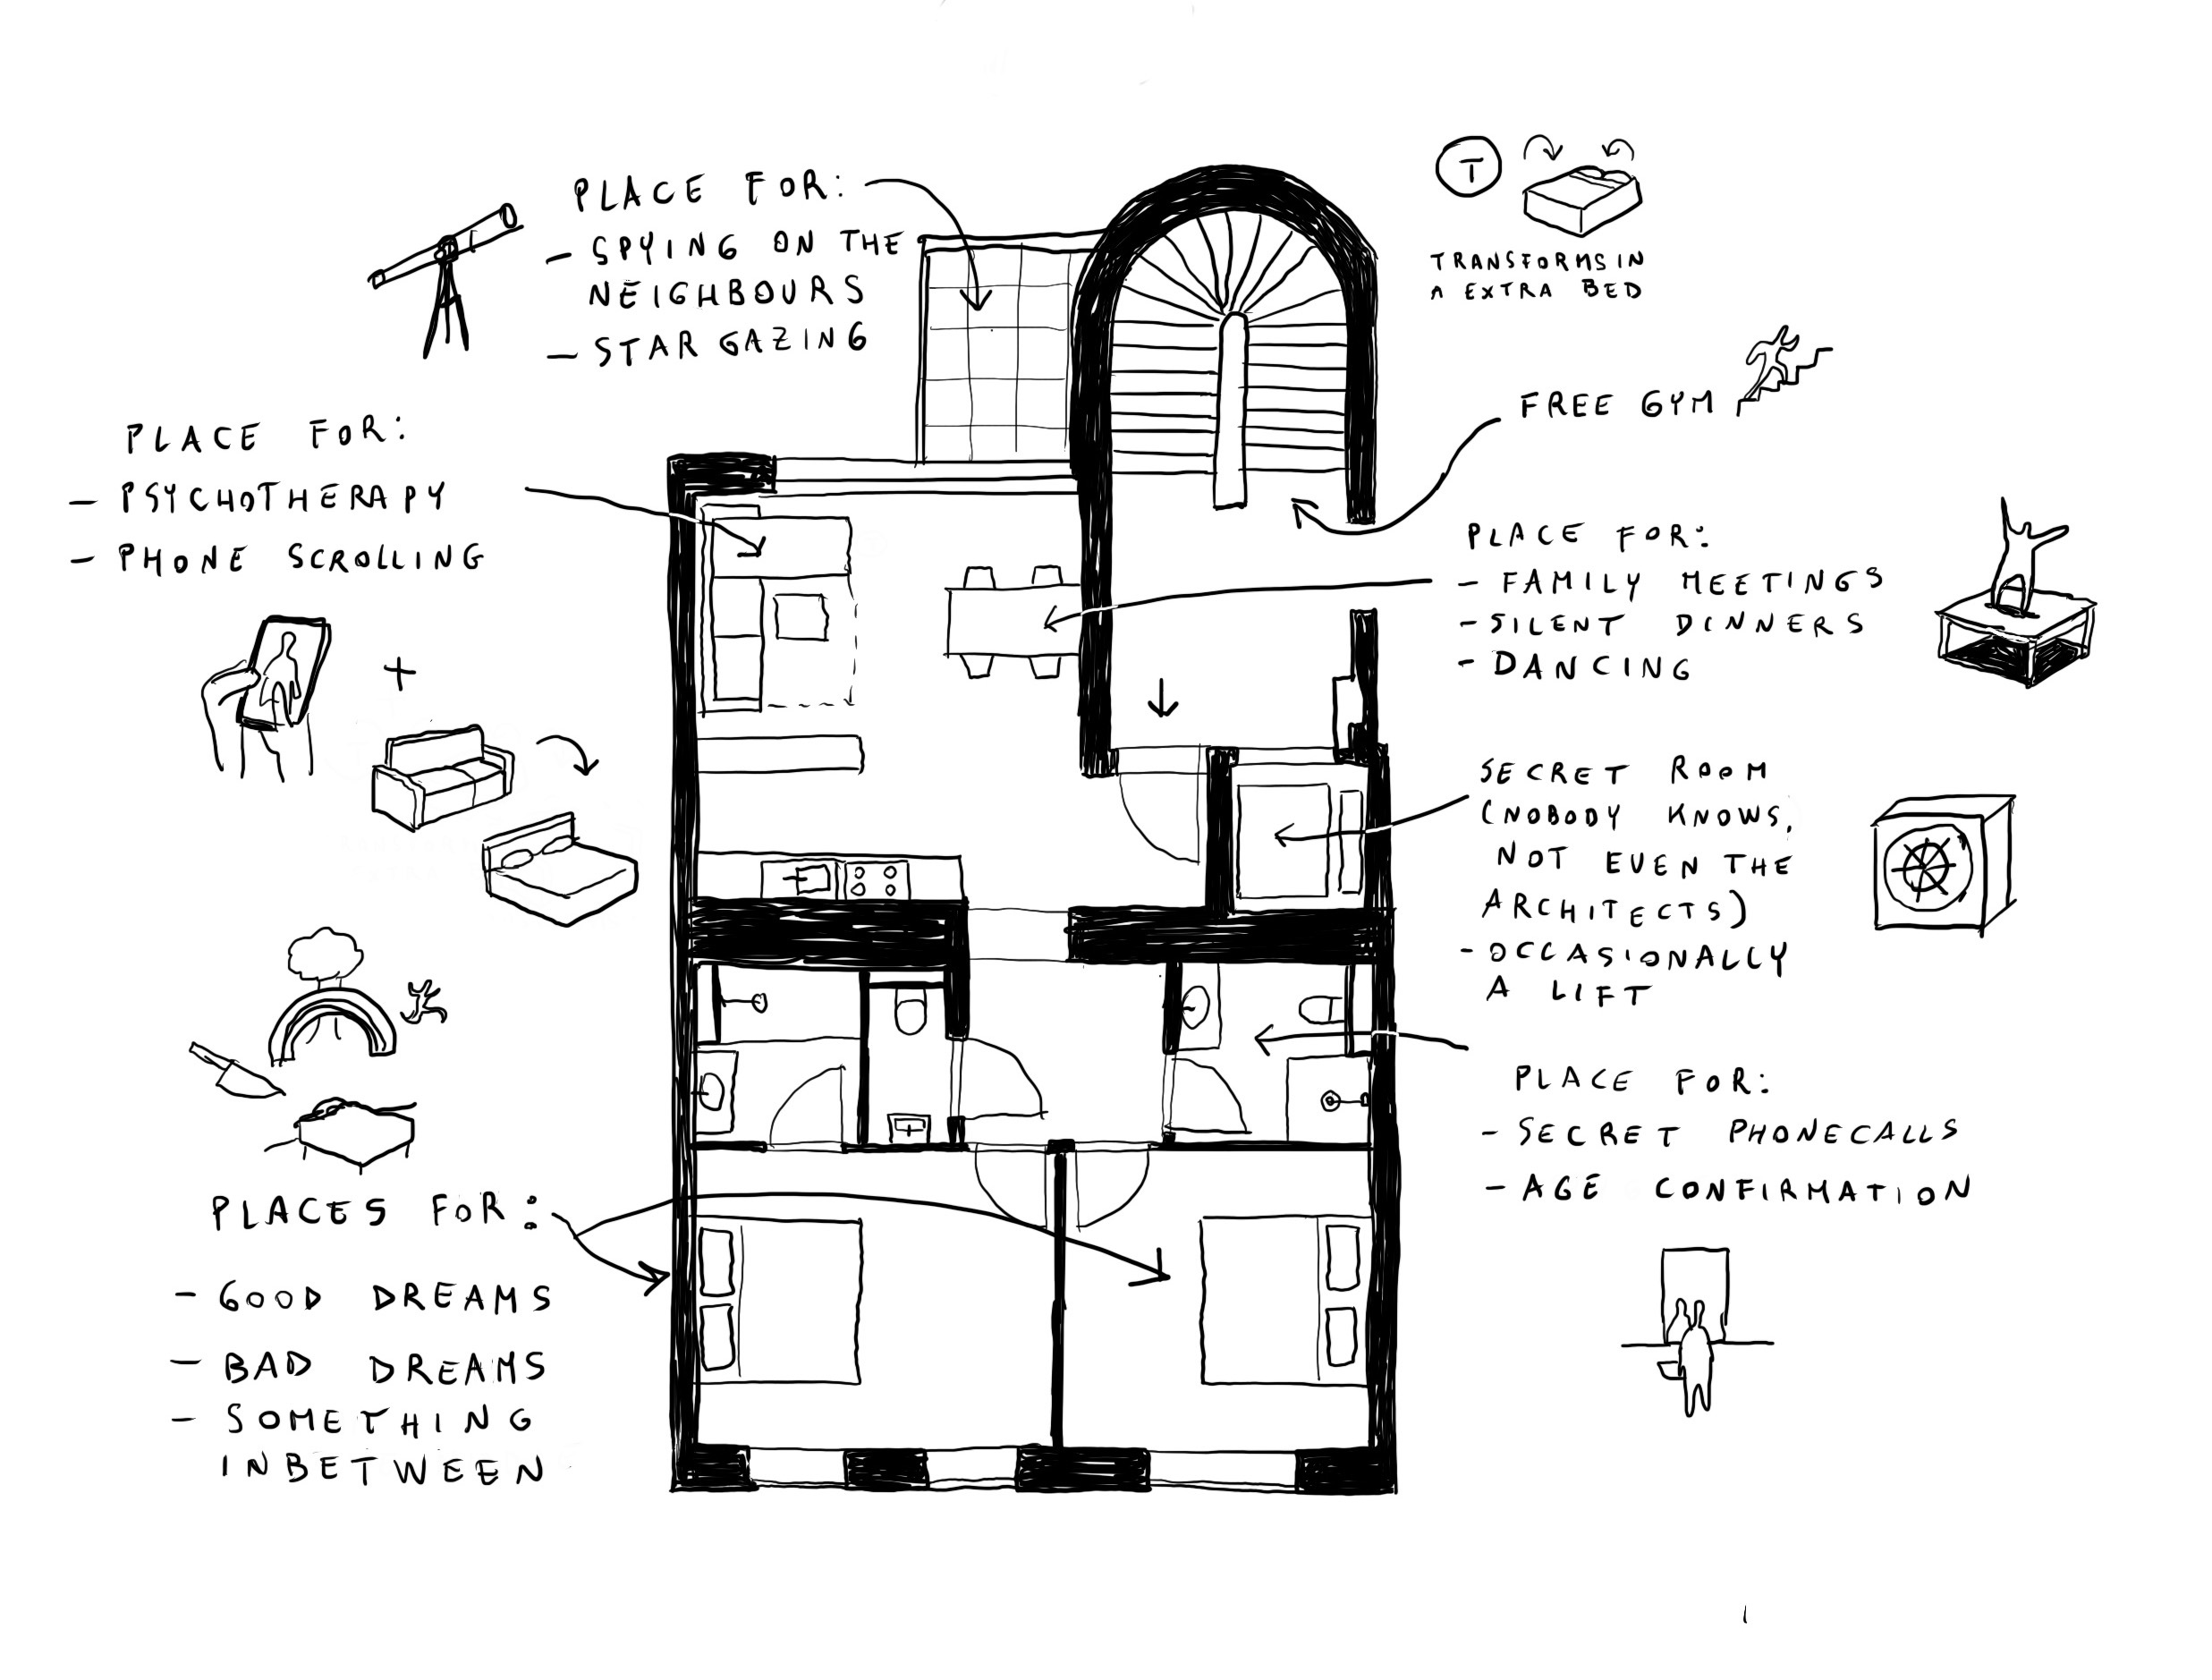 PLACE FOR:
- SPYING ON THE
NEIGHBOURS
- STAR GAZING
T
TRANSFORMS IN
A EXTRA BED
FREE GYM
PLACE FOR:
- PSYCHOTHERAPY
- PHONE SCROLLING
+
PLACE FOR:
- FAMILY MEETINGS
- SILENT DINNERS
- DANCING
SECRET ROOM
(NOBODY KNOWS,
NOT EVEN THE
ARCHITECTS)
- OCCASIONALLY
A LIFT
PLACE FOR:
- SECRET PHONECALLS
- AGE CONFIRMATION
PLACES FOR:
- GOOD DREAMS
- BAD DREAMS
- SOMETHING
INBETWEEN